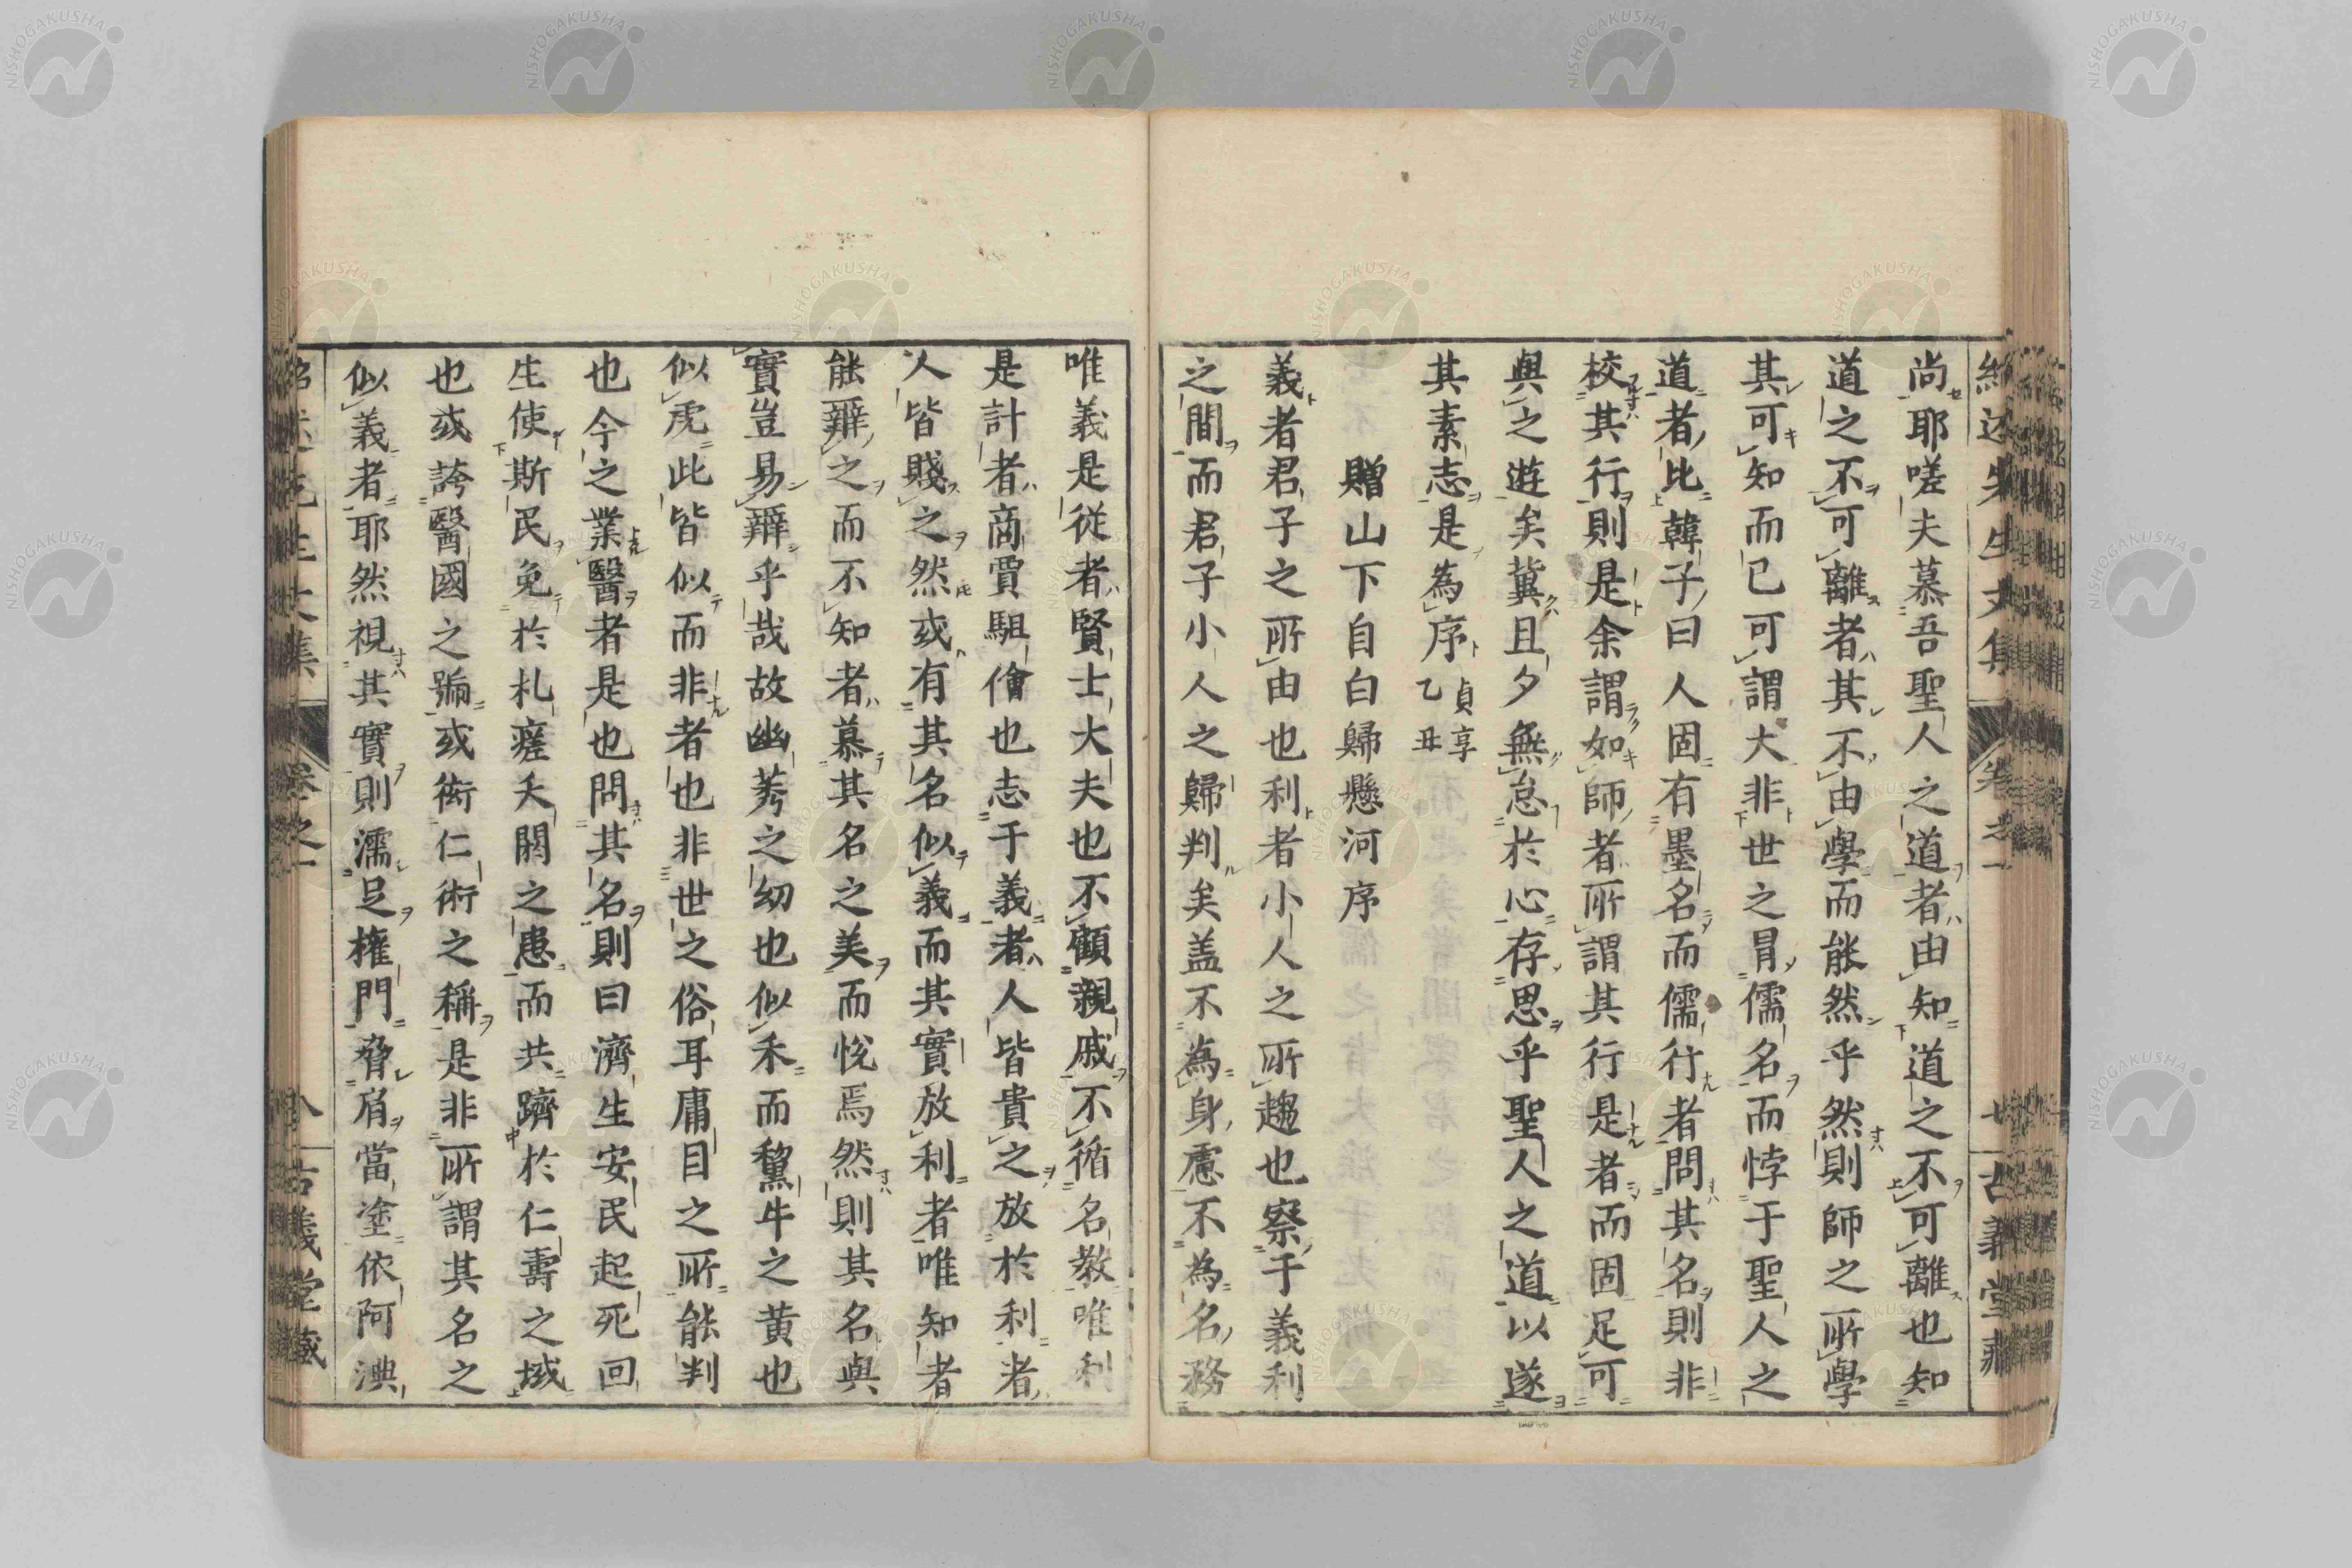 紹述先生文集 卷之一 七 古義堂藏
尚耶嗟夫慕吾聖人之道者由知道之不可離也知
道之不可離者其不由學而能然乎然則師之所學
其可知而已可謂大非世之冒儒名而悖于聖人之
道者比韓子曰人固有墨名而儒行者問其名則非
校其行則是余謂如師者所謂其行是者而固足可
與之遊矣冀且夕無怠於心存思乎聖人之道以遂
其素志是為序 貞享乙丑
贈山下自白歸懸河序
義者君子之所由也利者小人之所趨也察于義利
之間而君子小人之歸判矣盖不為身慮不為名務
唯義是從者賢士大夫也不顧親戚不循名教唯利
是計者商賈駔儈也志于義者人皆貴之放於利者
人皆賤之然或有其名似義而其實放利者唯知者
能辨之而不知者慕其名之美而悅焉然則其名與
實豈易辨乎哉故幽莠之幼也似禾而黧牛之黄也
似虎此皆似而非者也非世之俗耳庸目之所能判
也今之業醫者是也問其名則曰濟生安民起死回
生使斯民免於札瘥夭閼之患而共躋於仁壽之域
也或誇醫國之號或衒仁術之稱是非所謂其名之
似義者耶然視其實則濡足權門脅肩當塗依阿淟
紹述先生文集 卷之一 八 古義堂藏